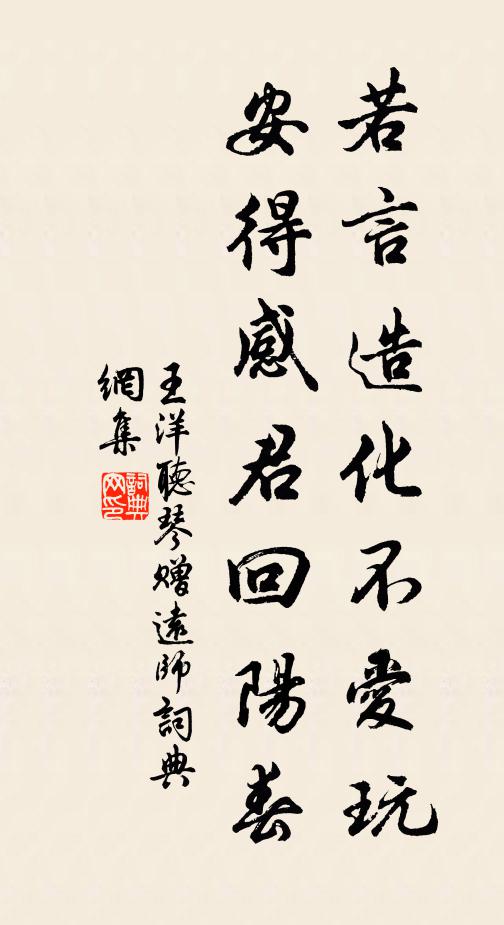 若言造化不愛玩
安得感君回陽春
王洋聽琴贈遠師詞典
網集
詞典
网印